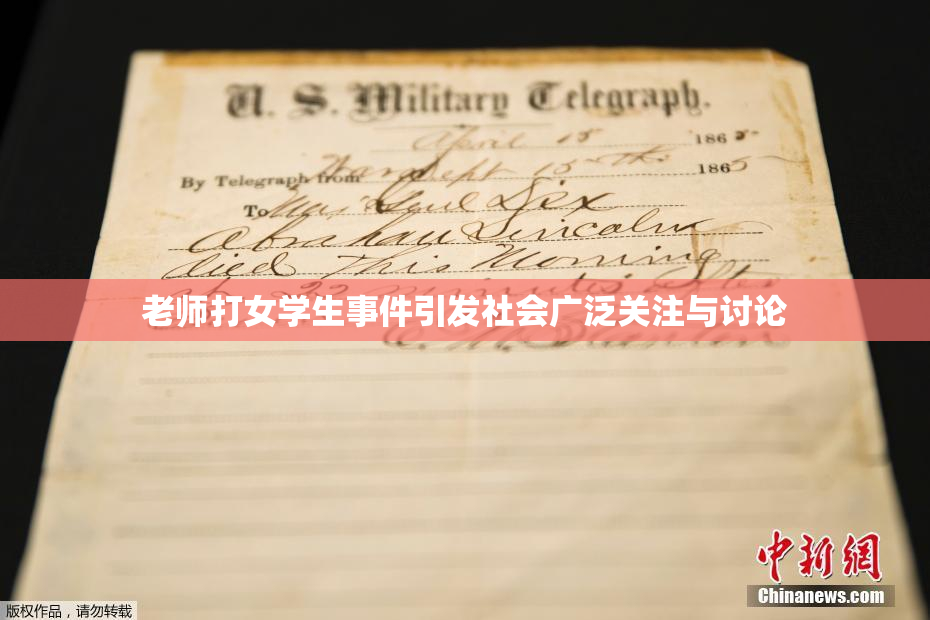 U. S. Military Telegraph.
April 15 1865
By Telegraph from War Dept 15th 1865
To Maj Genl Dix
Abraham Lincoln
died This Morning
at 22 minutes after
老师打女学生事件引发社会广泛关注与讨论
中新网
Chinanews.com
版权作品，请勿转载